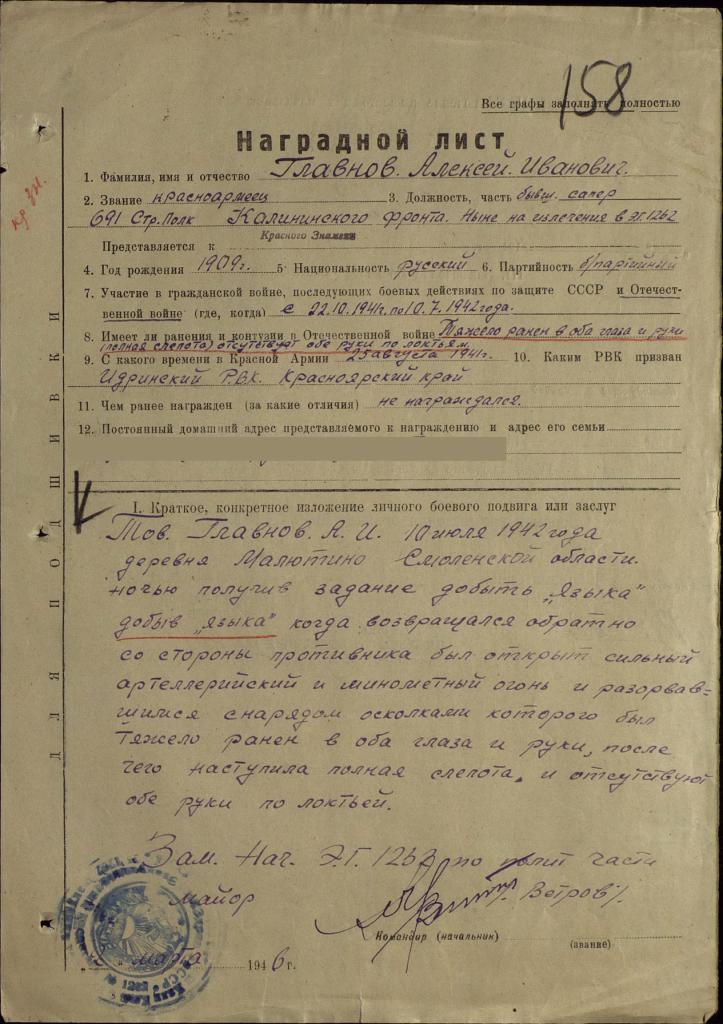 158
Все графы заполнять полностью
Наградной лист
кр зн.
1. Фамилия, имя и отчество Главнов. Алексей. Иванович.
2. Звание красноармеец 3. Должность, часть бывш. сапер
691 Стр. Полк Калининского фронта. Ныне на излечении в ЭГ 1262
Представляется к Красного Знамени
4. Год рождения 1909г. 5. Национальность русский 6. Партийность б/партийный
7. Участие в гражданской войне, последующих боевых действиях по защите СССР и Отечест-
венной войне (где, когда) с 22.10.1941г. по 10.7.1942 года.
8. Имеет ли ранения и контузии в Отечественной войне Тяжело ранен в оба глаза и руки
(полная слепота) отсутствуют обе руки по локтьям
9. С какого времени в Красной Армии 25 августа 1941г. 10. Каким РВК призван
Идринский РВК. Красноярский край
11. Чем ранее награжден (за какие отличия) не награждался.
12. Постоянный домашний адрес представляемого к награждению и адрес его семьи
I. Краткое, конкретное изложение личного боевого подвига или заслуг
Тов. Главнов. А. И. 10 июля 1942 года
деревня Малютино Смоленской области.
ночью получив задание добыть „Языка"
добыв „языка" когда возвращался обратно
со стороны противника был открыт сильный
артеллерийский и минометный огонь и разорвав-
шимся снарядом осколками которого был
тяжело ранен в оба глаза и руки, после
чего наступила полная слепота, и отсутствуют
обе руки по локтьей.
Зам. Нач. Э.Г. 1262 по полит части
майор Ветров/.
Командир (начальник)
(звание)
марта 1946 г.
ДЛЯ ПОДШИВКИ